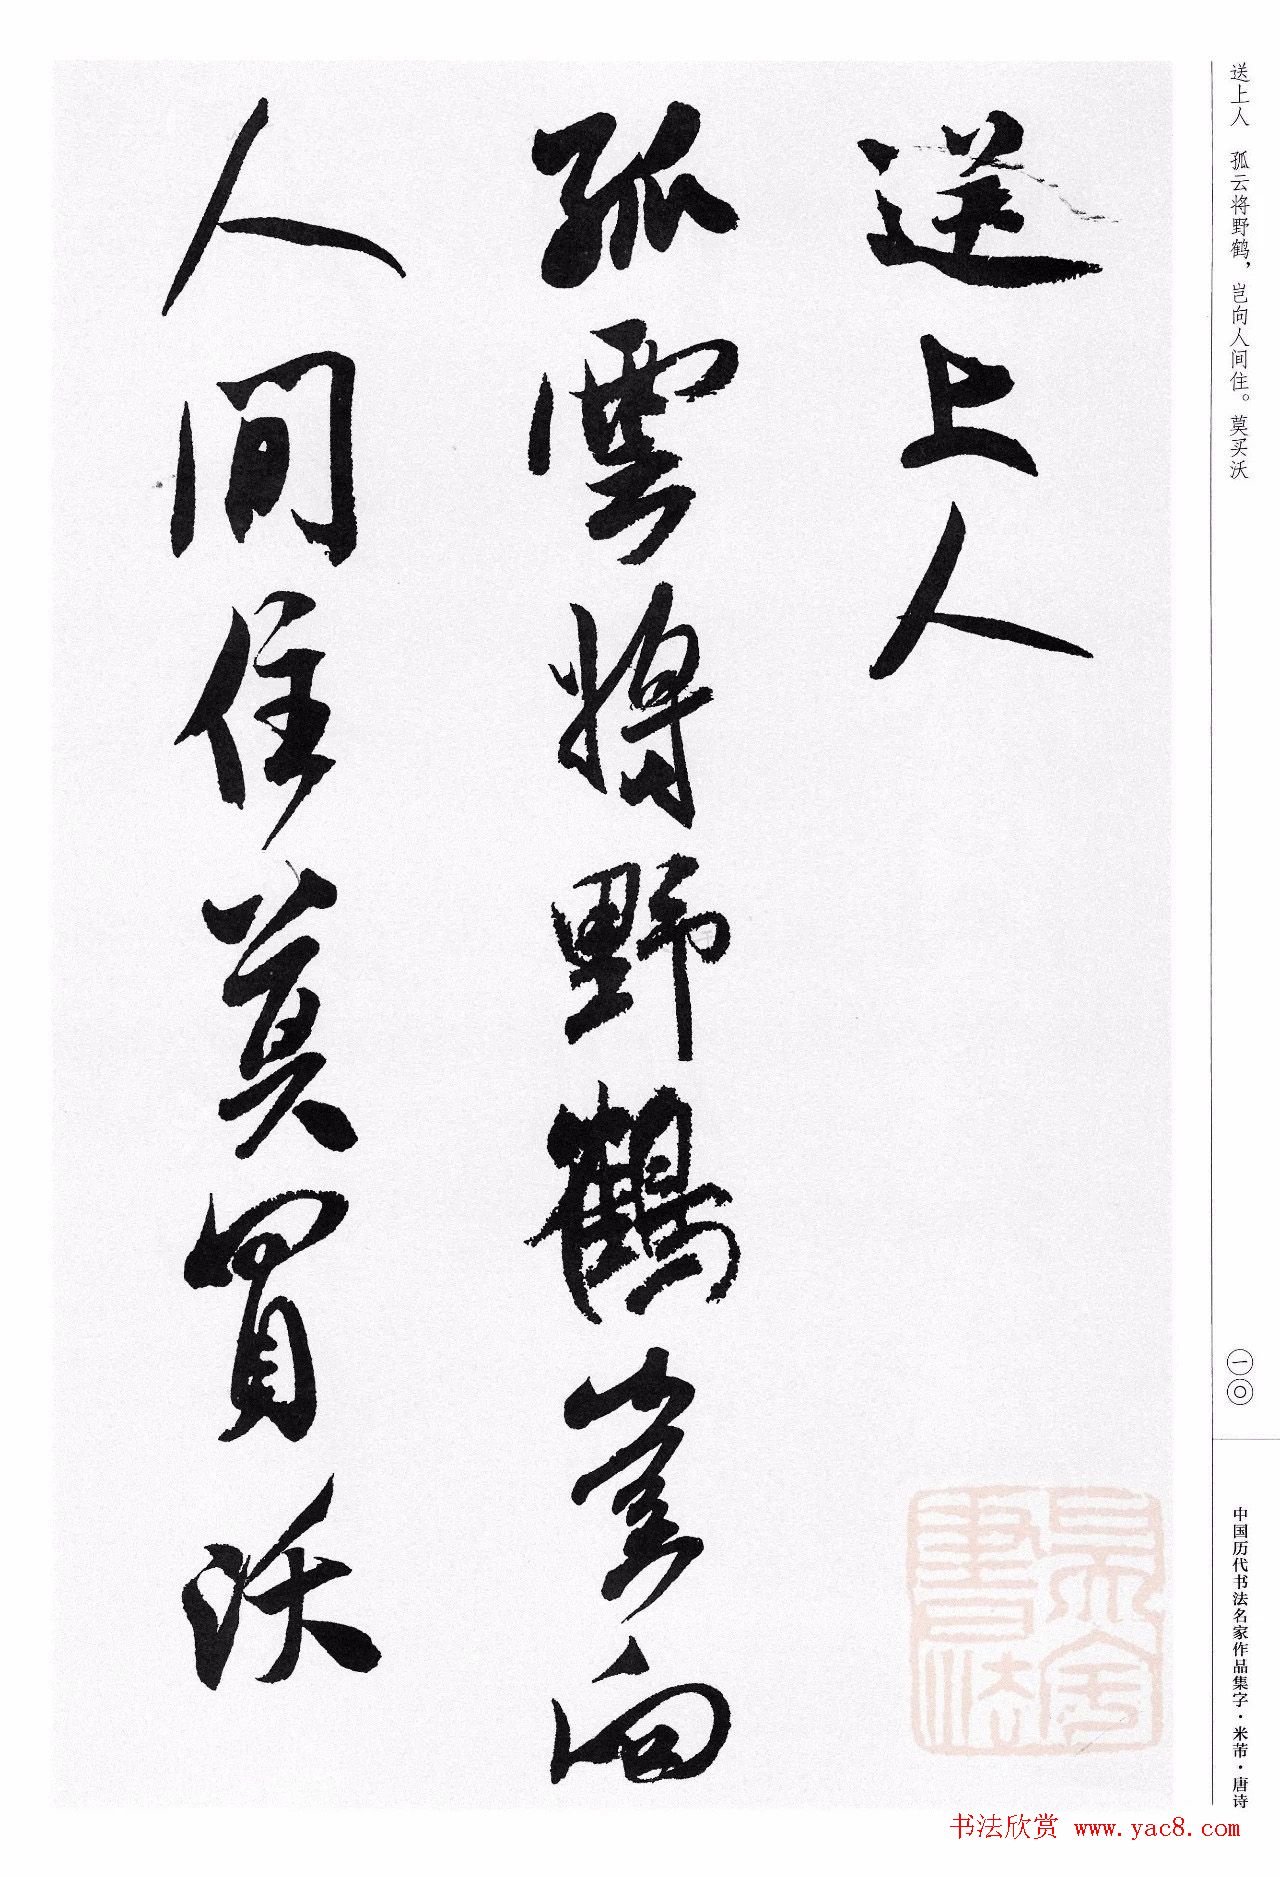 送上人
孤雲將野鶴豈向
人間住莫買沃
送上人 孤云将野鹤，岂向人间住。莫买沃
一〇
中国历代书法名家作品集字·米芾·唐诗
书法欣赏 www.yac8.com